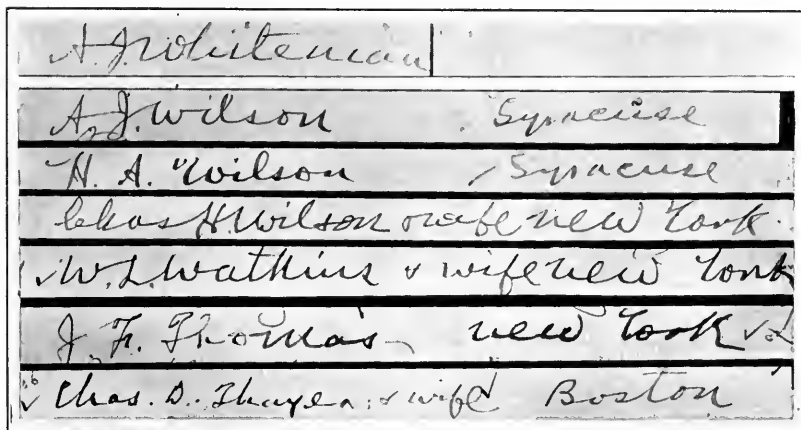 A. J. Whiteman
A. J. Wilson Syracuse
H. A. Wilson Syracuse
Chas H. Wilson & wife New York
W. L. Watkins & wife New York
J. F. Thomas New York
Chas. D. Thayer & wife Boston